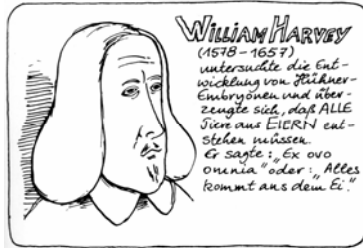 WILLIAM HARVEY
(1578-1657)
untersuchte die Ent-
wicklung von Hühner-
Embryonen und über-
zeugte sich, daß ALLE
Tiere aus EIERN ent-
stehen müssen.
Er sagte: „Ex ovo
omnia" oder: „Alles
kommt aus dem Ei."